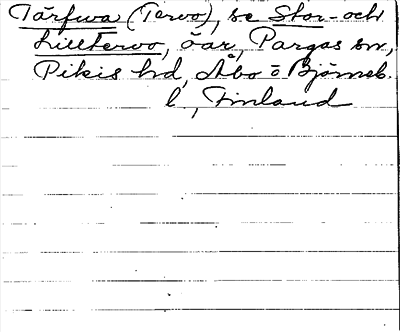 Tärfwa (Tervo), se Stor- och
Lilltervo, öar, Pargas sn,
Pikis hd, Åbo o Björneb.
l, Finland